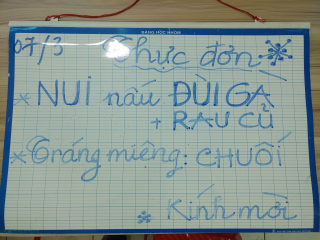 BẢNG HỌC NHÓM
07/3 Thực đơn
* NUI nấu ĐÙI GÀ
+ RAU CỦ
* Tráng miệng: CHUỐI
* Kính mời